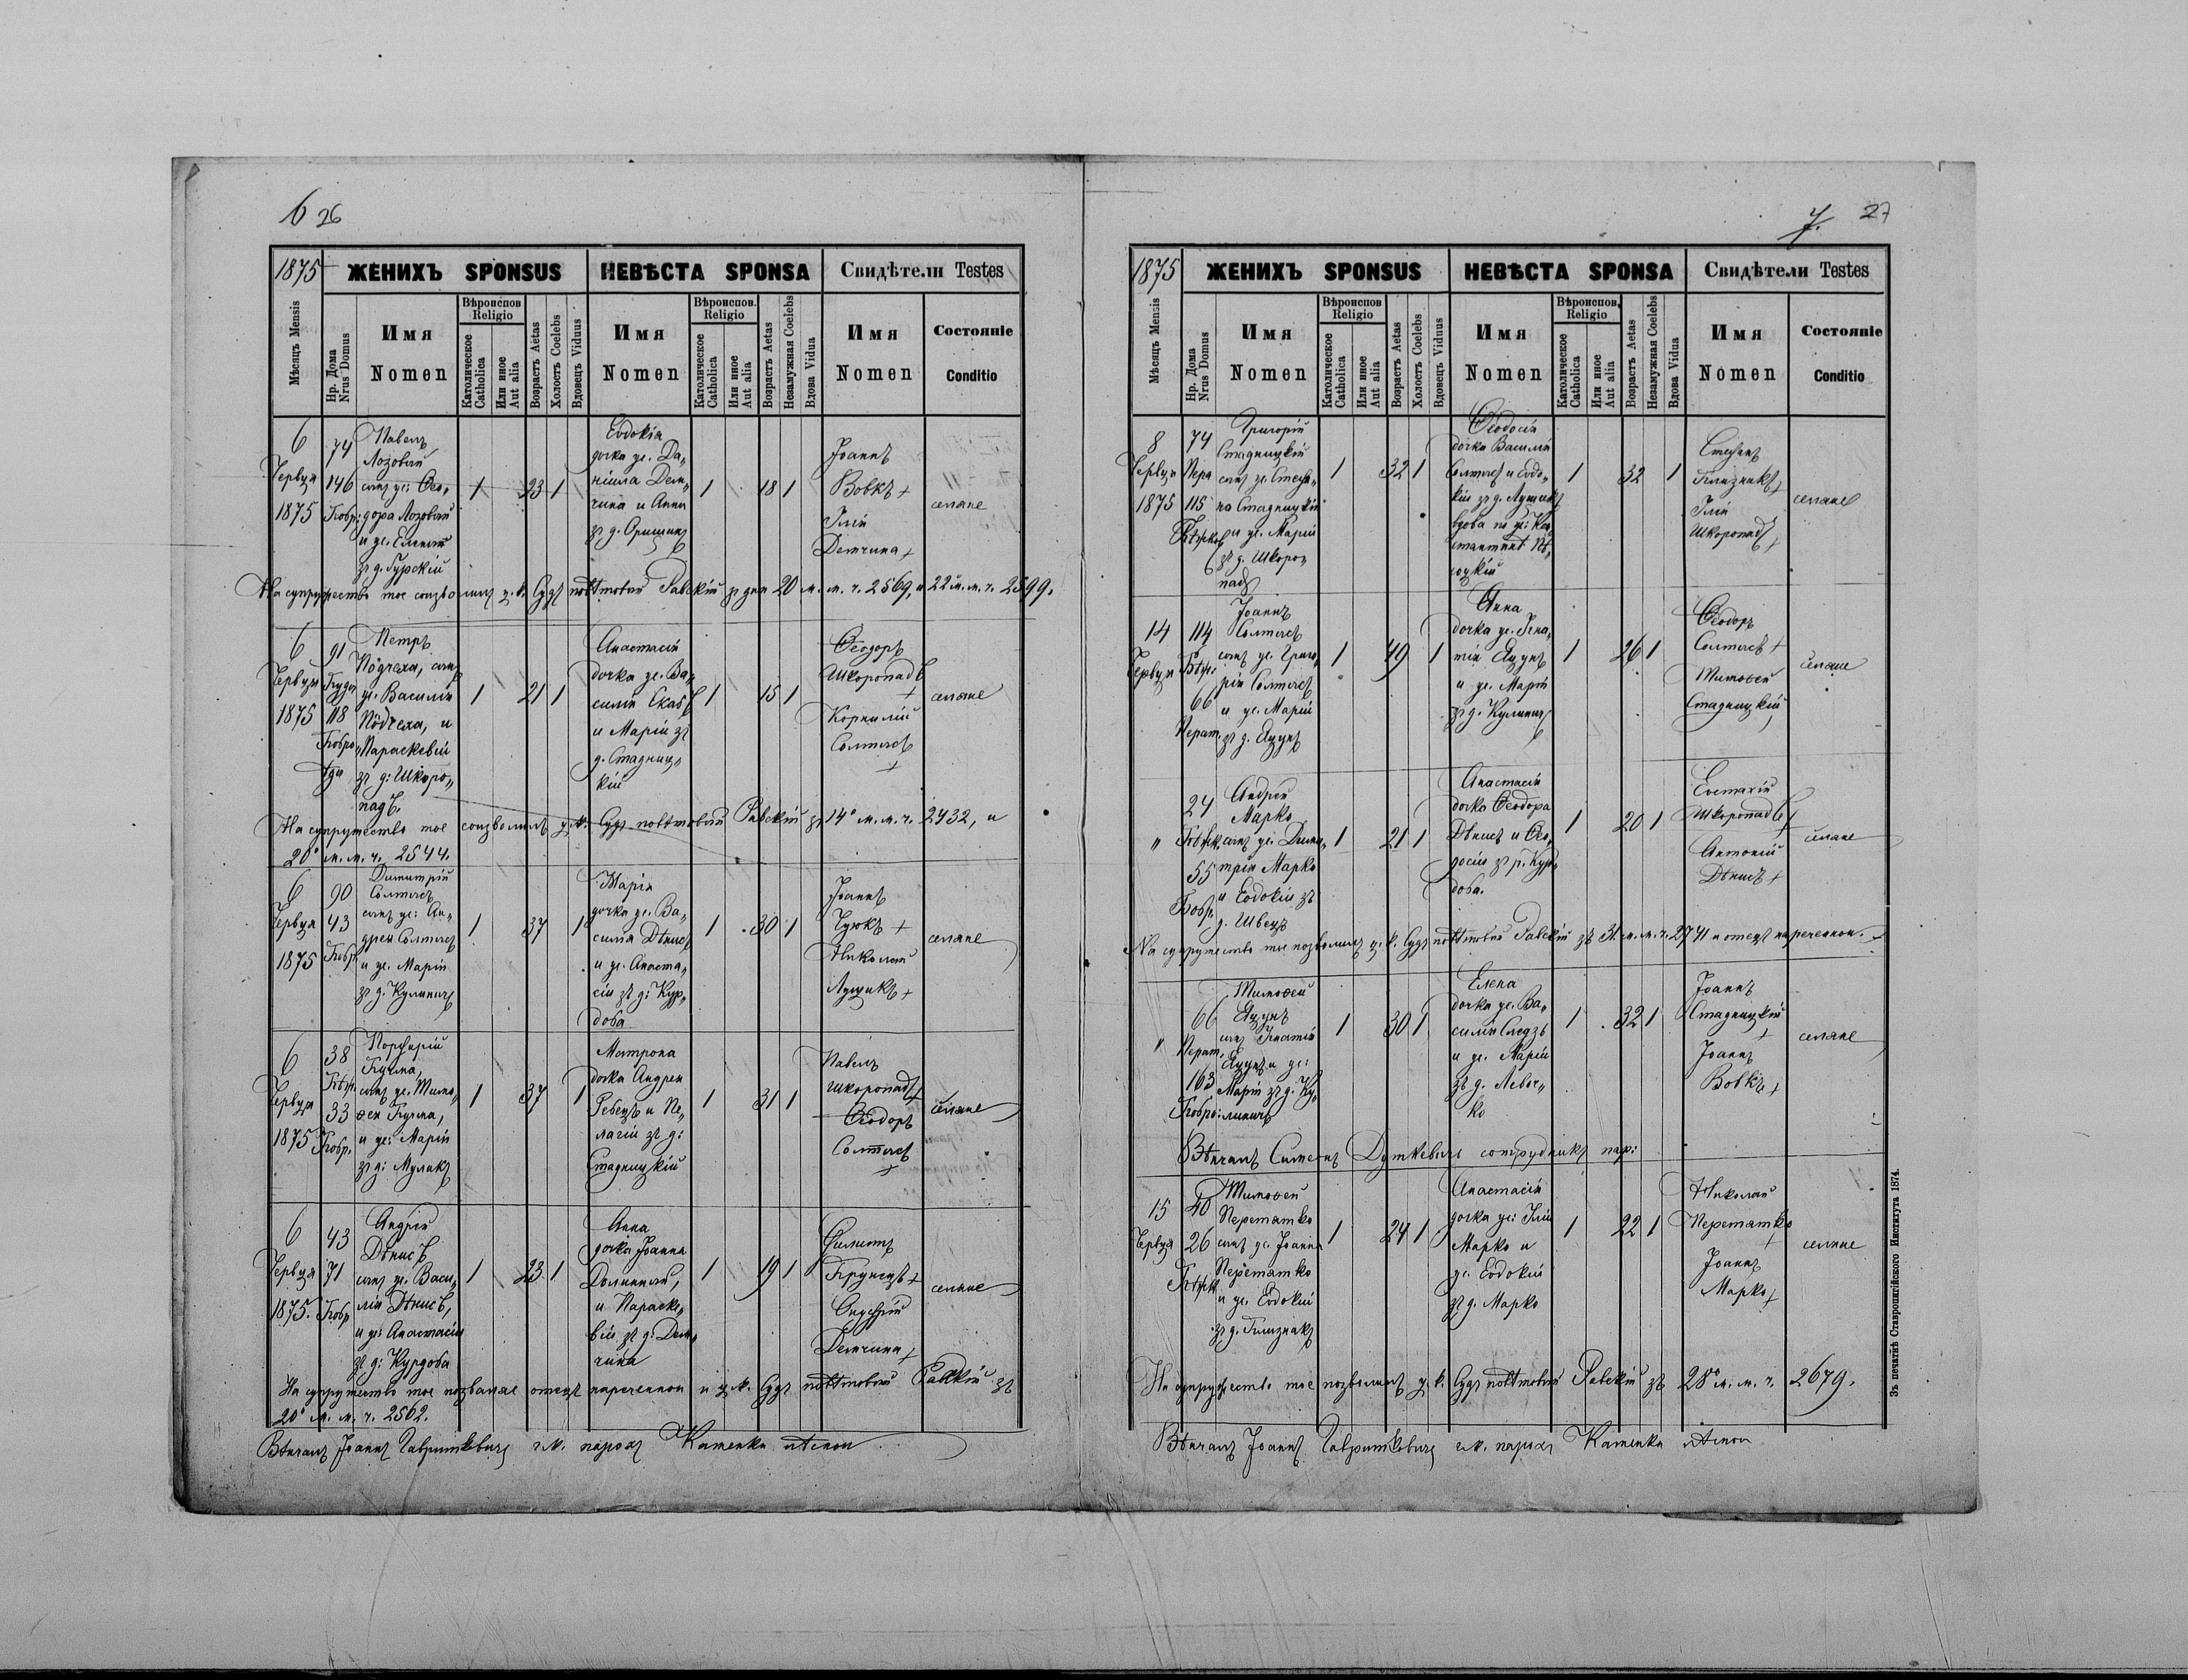 6 26
1875
ЖЕНИХЪ SPONSUS
НЕВѢСТА SPONSA
Свидѣтели Testes
Мѣсяцъ Mensis
Нр. Дома
Nrus Domus
Имя
Nomen
Вѣроиспов
Religio
Католическое
Catholica
Или иное
Aut alia
Возрастъ Aetas
Холостъ Coelebs
Вдовецъ Viduus
Имя
Nomen
Вѣроиспов.
Religio
Католическое
Catholica
Или иное
Aut alia
Возрастъ Aetas
Незамужная Coelebs
Вдова Vidua
Имя
Nomen
Состояніе
Conditio
6
Червця
1875
74
146
Бобр:
Павелъ
Лозовый
сынъ ус: Ѳео„
дора Лозовый
и ус. Елены
зъ д. Гурскій
1 23 1
Евдокія
дочка ус. Да„
ніила Дем„
чина и Анны
зъ д. Оришинъ
1 18 1
Іоаннъ
Вовкъ +
Илія
Демчина +
селяне
На супружество тое соизволилъ ц. к. Судъ повѣтовый Равскій зъ дня 20 м. м. ч. 2569, и 22 м. м. ч. 2599.
6
Червця
1875
91
118
Петръ
Подчеха, сынъ
ус. Василія
Подчеха, и
Параскевіи
зъ д: Шкоро„
падъ.
1 21 1
Анастасія
дочка ус. Ва„
силія Скабъ
и Маріи зъ
д. Стадниц„
кій
1 15 1
Ѳеодоръ
Шкоропадъ
+
Корнилій
Солтысъ
+
селяне
На супружество тое соизволилъ ц. к. Судъ повѣтовый Равскій зъ 14° м. м. ч. 2432, и
20° м. м. ч. 2544.
6
Червця
1875
90
43
Бобр.
Димитрій
Солтысъ
сынъ ус: Ан„
дрея Солтысъ
и ус. Маріи
зъ д. Кулиничъ
1 37 1
Марія
дочка ус. Ва„
силія Дѣнисъ
и ус. Анаста„
сіи зъ д: Кур„
доба
1 30 1
Іоаннъ
Чуюкъ +
Николай
Лущикъ +
селяне
6
Червця
1875
38
33
Бобр.
Порфирій
Кучма,
сынъ ус. Тимо„
ѳея Кучма,
и ус: Маріи
зъ д: Мулакъ
1 37 1
Матрона
дочка Андрея
Ребецъ и Пе„
лагіи зъ д:
Стадницкій
1 31 1
Павелъ
Шкоропадъ +
Ѳеодоръ
Солтысъ
+
селяне
6
Червця
1875.
43
71
Бобр
Андрей
Дѣнисъ
сынъ ус. Васи„
лія Дѣнисъ,
и ус: Анастасіи
зъ д: Курдоба
1 23 1
Анна
дочка Іоанна
и Параске„
віи зъ д: Дем„
чина
1 19 1
Филиппъ
+
Онуфрій
Демчина +
селяне
На супружество тое позваляе отецъ нареченной и ц. к. Судъ повѣтовый Равскій зъ
20° м. м. ч. 2562.
Вѣнчалъ Іоаннъ Гавришкевичъ гк. парохъ Каменки лѣсной
7. 27
1875
ЖЕНИХЪ SPONSUS
НЕВѢСТА SPONSA
Свидѣтели Testes
Мѣсяцъ Mensis
Нр. Дома
Nrus Domus
Имя
Nomen
Вѣроиспов
Religio
Католическое
Catholica
Или иное
Aut alia
Возрастъ Aetas
Холостъ Coelebs
Вдовецъ Viduus
Имя
Nomen
Вѣроиспов,
Religio
Католическое
Catholica
Или иное
Aut alia
Возрастъ Aetas
Незамужная Coelebs
Вдова Vidua
Имя
Nomen
Состояніе
Conditio
8
Червця
1875
74
115
Григорій
Стадницкій
сынъ ус. Стефа„
на Стадницкій
и ус. Маріи
зъ д. Шкоро„
падъ
1 32 1
Ѳеодосія
дочка Василія
Солтысъ и Евдо„
кіи зъ д. Лущикъ
вдова по ус: Кон
стантинѣ Пѣ„
соцкій
1 32 1
Стефанъ
Близнакъ +
Илія
Шкоропадъ
+
селяне
14
Червця
114
66
Перат.
Іоаннъ
Солтысъ
сынъ ус. Григо„
рія Солтысъ
и ус. Маріи
зъ д. Яцунъ
1 49 1
Анна
дочка ус. Игна„
тія Яцунъ
и ус. Маріи
зъ д. Кулиничъ
1 26 1
Ѳеодоръ
Солтысъ +
Тимоѳей
Стадницкій
селяне
„
24
55
Бобр.
Андрей
Марко
сынъ ус: Дими„
трія Марко
и Евдокіи зъ
д. Швецъ
1 21 1
Анастасія
дочка Ѳеодора
Дѣнисъ и Ѳео„
досіи зъ р. Кур„
доба.
1 20 1
Евстахій
Шкоропадъ +
Антоній
Дѣнисъ +
селяне
На супружество тое позволилъ ц. к. Судъ повѣтовый Равскій зъ 31. м. м. ч. 2741 и отецъ нареченной.
„
66
Перат.
163
Бобро:
Тимоѳей
Яцунъ
сынъ Игнатія
Яцунъ и ус:
Маріи зъ д. Ку„
линичъ
1 30 1
Елена
дочка ус. Ва„
силія Следзь
и ус. Маріи
зъ д. Левоч„
ко
1 32 1
Іоаннъ
Стадницкій
+
Іоаннъ
Вовкъ +
селяне
Вѣнчалъ Симеонъ Дуткевичъ сотрудникъ пар:
15
Червця
40
26
Тимоѳей
Перетятко
сынъ ус. Іоанна
Перетятко
и ус. Евдокіи
зъ д. Близнакъ
1 24 1
Анастасія
дочка ус: Иліи
Марко и
ус. Евдокіи
зъ д. Марко
1 22 1
Николай
Перетятко
+
Іоаннъ
Марко +
селяне
На супружество тое позволилъ ц. к. Судъ повѣтовый Равскій зъ 28° м. м. ч. 2679.
Вѣнчалъ Іоаннъ Гавришкевичъ гк. парохъ Каменки лѣсной
Зъ печатнѣ Ставропигійского Института 1874.